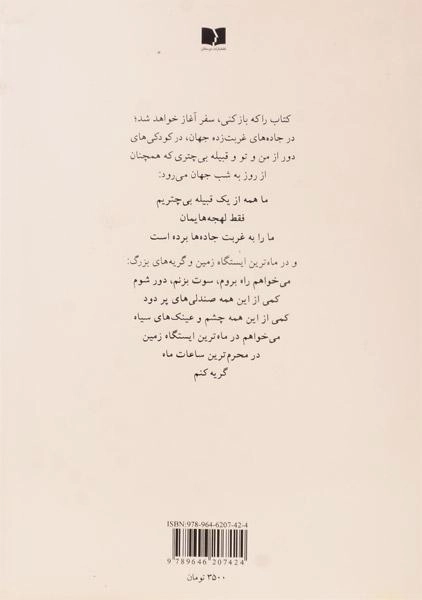 انتشارات دوستان
کتاب را که باز کنی، سفر آغاز خواهد شد؛
در جاده‌های غربت‌زده جهان، در کودکی‌های
دور از من و تو و قبیله بی‌چتری که همچنان
از روز به شب جهان می‌رود:
ما همه از یک قبیله بی‌چتریم
فقط لهجه‌هایمان
ما را به غربت جاده‌ها برده است
و در ماه‌ترین ایستگاه زمین و گریه‌های بزرگ:
می‌خواهم راه بروم، سوت بزنم، دور شوم
کمی از این همه صندلی‌های پر دود
کمی از این همه چشم و عینک‌های سیاه
می‌خواهم در ماه‌ترین ایستگاه زمین
در محرم‌ترین ساعات ماه
گریه کنم
ISBN:978-964-6207-42-4
9 789646 207424
۳۵۰۰ تومان